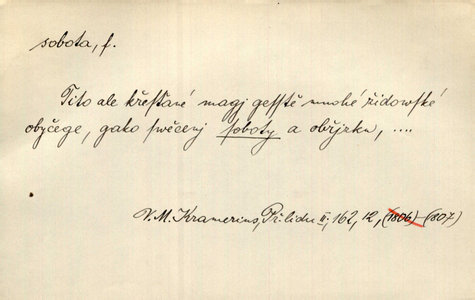 sobota, f.
Tito ale křesťané magj gesstě mnohé židowské
obyčege, gako swěcenj soboty a obřjzku, ....
V. M. Kramerius, Přilidu II, 162, 12, (1806) (1807)